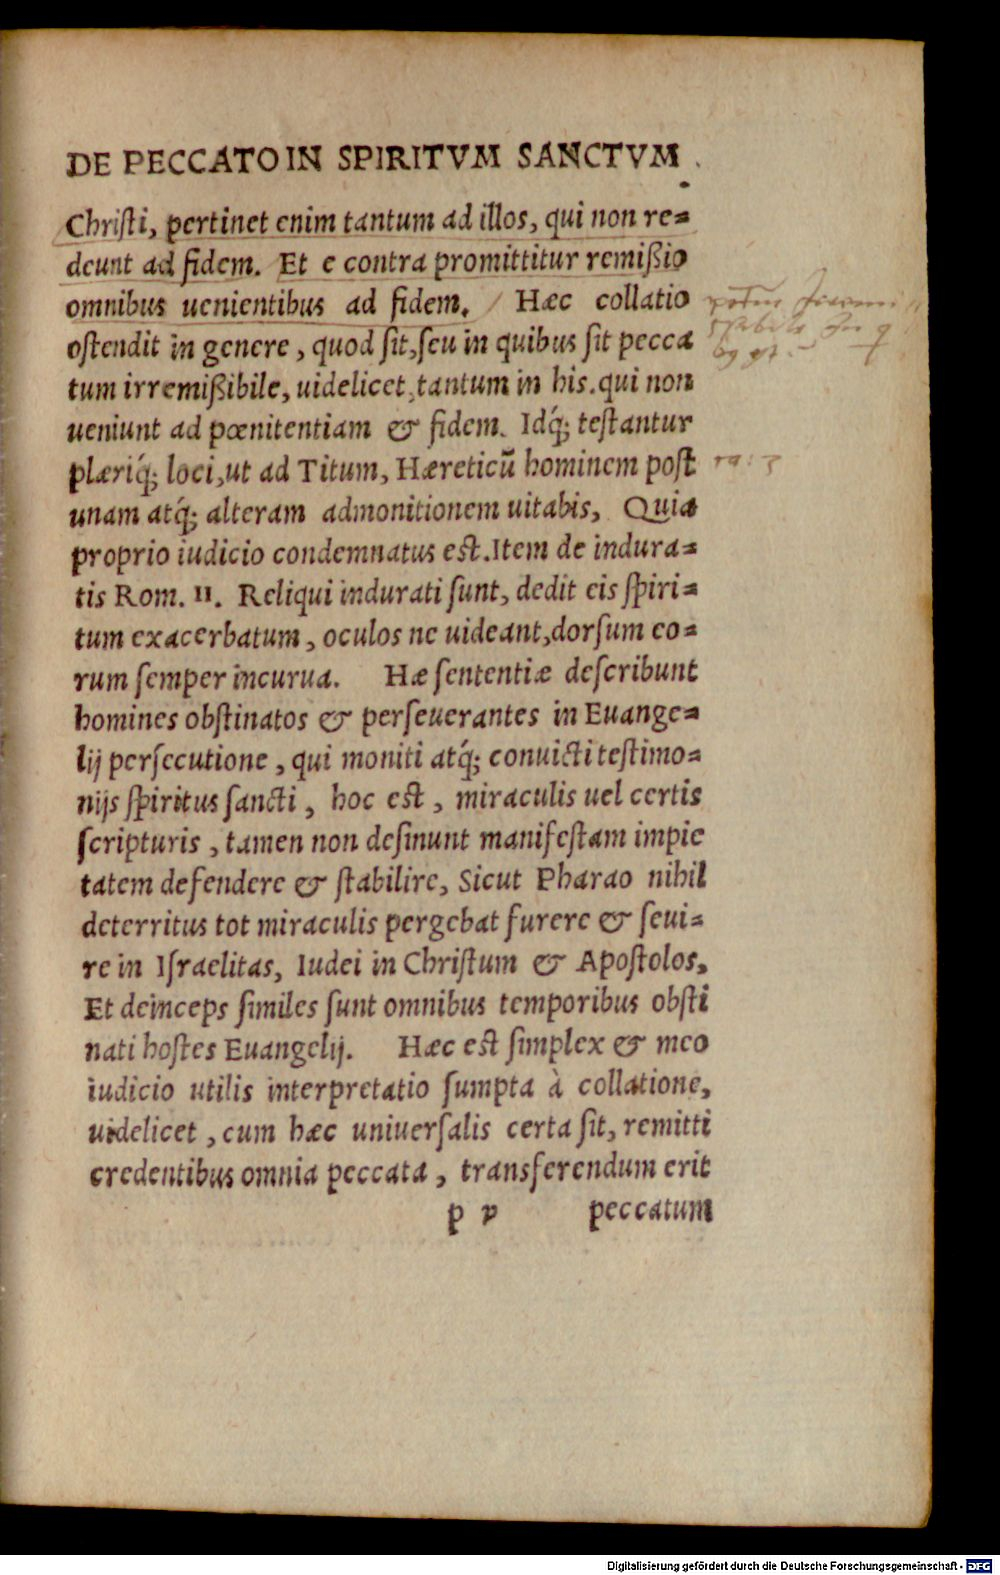 DE PECCATO IN SPIRITVM SANCTVM.
Christi, pertinet enim tantum ad illos, qui non re=
deunt ad fidem. Et e contra promittitur remißio
omnibus uenientibus ad fidem. Hæc collatio
ostendit in genere, quod sit, seu in quibus sit pecca
tum irremißibile, uidelicet, tantum in his. qui non
ueniunt ad pœnitentiam & fidem. Idq́; testantur
plæriq́; loci, ut ad Titum, Hæreticũ hominem post
unam atq́; alteram admonitionem uitabis, Quia
proprio iudicio condemnatus est. Item de indura=
tis Rom. 11. Reliqui indurati sunt, dedit eis spiri=
tum exacerbatum, oculos ne uideant, dorsum eo=
rum semper incurua. Hæ sententiæ describunt
homines obstinatos & perseuerantes in Euange=
lij persecutione, qui moniti atq́; conuicti testimo=
nijs spiritus sancti, hoc est, miraculis uel certis
scripturis, tamen non desinunt manifestam impie
tatem defendere & stabilire, Sicut Pharao nihil
deterritus tot miraculis pergebat furere & seui=
re in Israelitas, Iudei in Christum & Apostolos,
Et deinceps similes sunt omnibus temporibus obsti
nati hostes Euangelij. Hæc est simplex & meo
iudicio utilis interpretatio sumpta à collatione,
uidelicet, cum hæc uniuersalis certa sit, remitti
credentibus omnia peccata, transferendum erit
p p peccatum
Digitalisierung gefördert durch die Deutsche Forschungsgemeinschaft - DFG